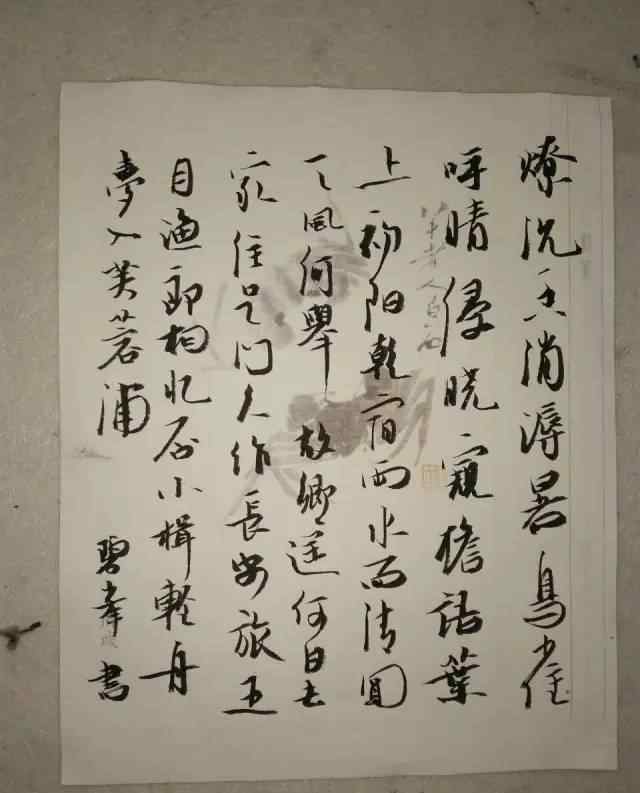 燎沉香消溽暑鳥雀
呼晴侵晓窺檐語葉
上初阳乾宿雨水面清圓
一一風何舉故鄉遥何日去
家住吴门久作長安旅五
月渔郎相忆否小楫軽舟
夢入芙蓉浦
書